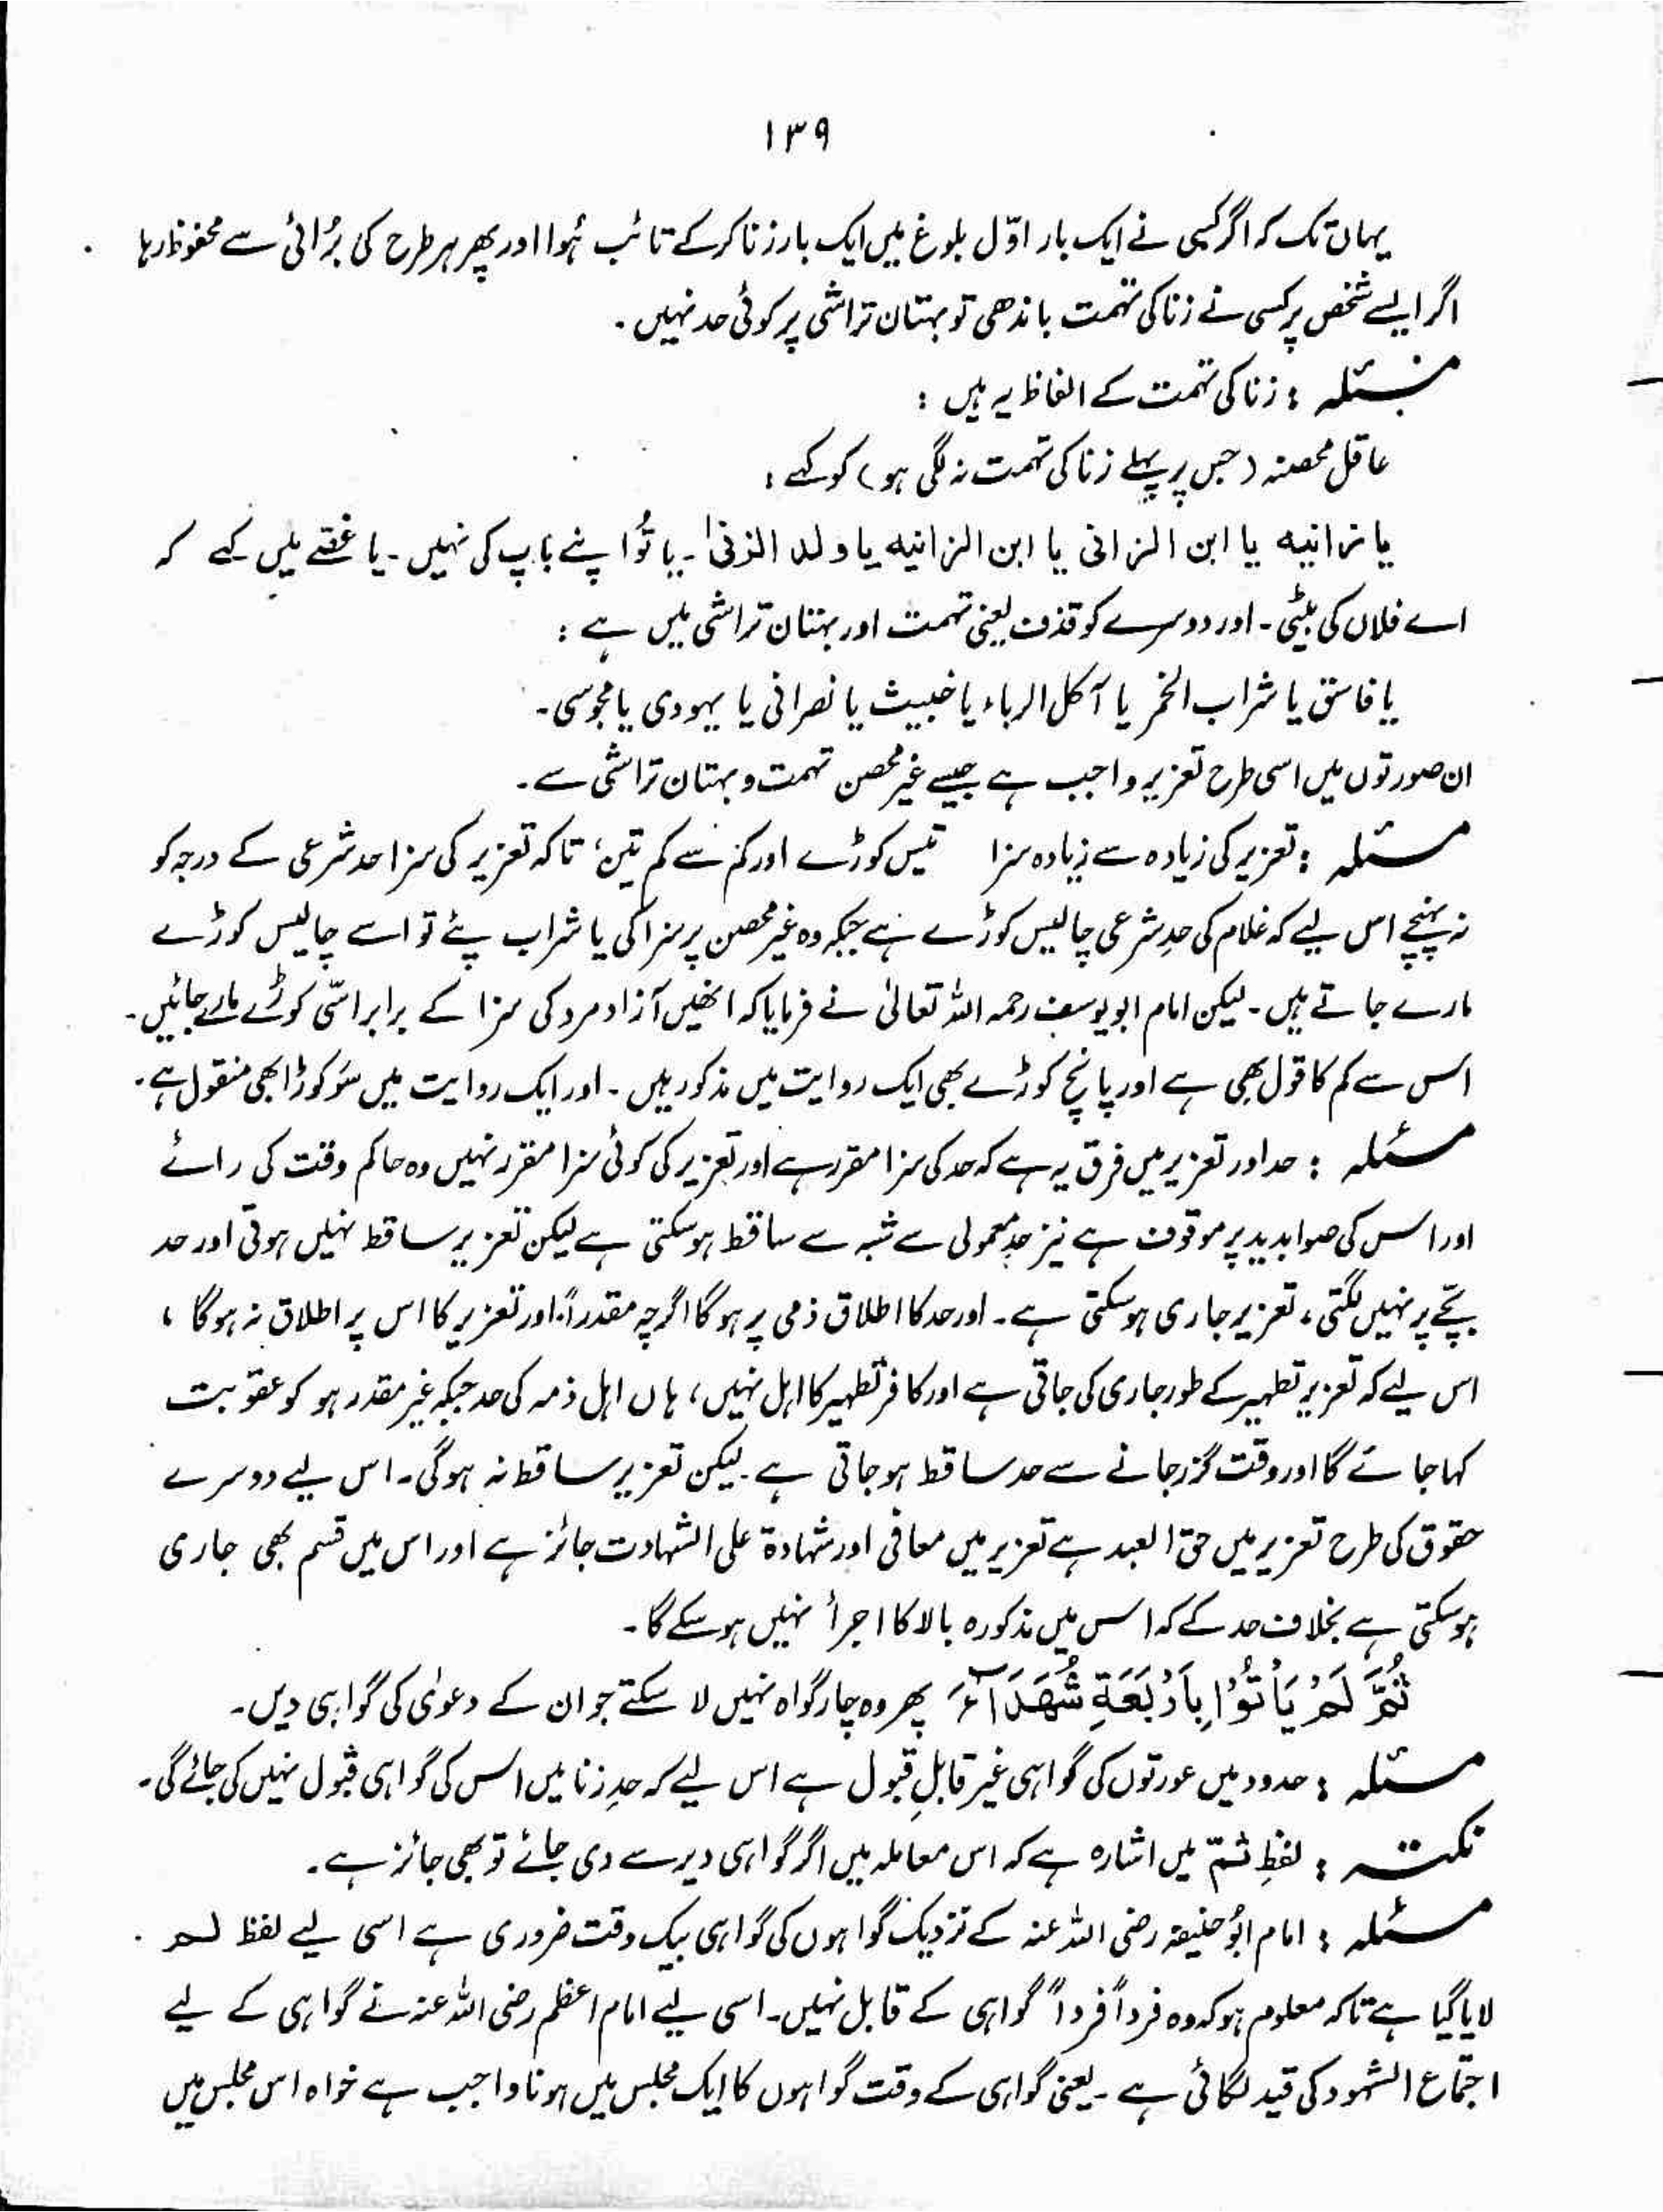 ۱۳۹
یہاں تک کہ اگر کسی نے ایک بار اوّل بلوغ میں ایک بار زنا کرکے تائب ہُوا اور پھر ہر طرح کی بُرائی سے محفوظ رہا
اگر ایسے شخص پر کسی نے زنا کی تہمت باندھی تو بہتان تراشی پر کوئی حد نہیں ۔
مسئلہ : زنا کی تہمت کے الفاظ یہ ہیں :
عاقل محصنہ (جس پر پہلے زنا کی تہمت نہ لگی ہو) کو کہے :
یا زانیہ یا ابن الزانی یا ابن الزانیہ یا ولد الزنا ۔ یا تُو اپنے باپ کی نہیں ۔ یا غصّے میں کہے کہ
اے فلاں کی بیٹی ۔ اور دوسرے کو قذف یعنی تہمت اور بہتان تراشی میں ہے :
یا فاسق یا شراب الخمر یا آکل الرباء یا خبیث یا نصرانی یا یہودی یا مجوسی ۔
ان صورتوں میں اسی طرح تعزیر واجب ہے جیسے غیر محصن تہمت و بہتان تراشی سے ۔
مسئلہ : تعزیر کی زیادہ سے زیادہ سزا تیس کوڑے اور کم سے کم تین ، تاکہ تعزیر کی سزا حد شرعی کے درجہ کو
نہ پہنچے اس لیے کہ غلام کی حدِ شرعی چالیس کوڑے ہے جبکہ وہ غیر محصن پر سزا کی یا شراب پئے تو اسے چالیس کوڑے
مارے جاتے ہیں ۔ لیکن امام ابو یوسف رحمہ اللہ تعالیٰ نے فرمایا کہ انھیں آزاد مرد کی سزا کے برابر اسّی کوڑے مارے جائیں ۔
اس سے کم کا قول بھی ہے اور پانچ کوڑے بھی ایک روایت میں مذکور ہیں ۔ اور ایک روایت میں سَو کوڑا بھی منقول ہے ۔
مسئلہ : حد اور تعزیر میں فرق یہ ہے کہ حد کی سزا مقرر ہے اور تعزیر کی کوئی سزا مقرر نہیں وہ حاکم وقت کی رائے
اور اس کی صوابدید پر موقوف ہے نیز حدِ معمولی سے شبہ سے ساقط ہو سکتی ہے لیکن تعزیر ساقط نہیں ہوتی اور حد
بچّے پر نہیں لگتی ، تعزیر جاری ہو سکتی ہے ۔ اور حد کا اطلاق ذمی پر ہو گا اگرچہ مقدراً اور تعزیر کا اس پر اطلاق نہ ہوگا ،
اس لیے کہ تعزیر تطہیر کے طور جاری کی جاتی ہے اور کافر تطہیر کا اہل نہیں ، ہاں اہل ذمہ کی حد جبکہ غیر مقدر ہو کو عقوبت
کہا جائے گا اور وقت گزر جانے سے حد ساقط ہو جاتی ہے لیکن تعزیر ساقط نہ ہوگی ۔ اس لیے دوسرے
حقوق کی طرح تعزیر میں حق العبد ہے تعزیر میں معافی اور شہادۃ علی الشہادت جائز ہے اور اس میں قسم بھی جاری
ہوسکتی ہے بخلاف حد کے کہ اس میں مذکورہ بالا کا اجرأ نہیں ہوسکے گا ۔
ثُمَّ لَمْ يَأْتُوْا بِاَرْبَعَةِ شُهَدَآءَ پھر وہ چار گواہ نہیں لا سکتے جو ان کے دعوٰی کی گواہی دیں ۔
مسئلہ : حدود میں عورتوں کی گواہی غیر قابلِ قبول ہے اس لیے کہ حدِ زنا میں اس کی گواہی قبول نہیں کی جائے گی ۔
نکتہ : لفظِ ثمّ میں اشارہ ہے کہ اس معاملہ میں اگر گواہی دیر سے دی جائے تو بھی جائز ہے ۔
مسئلہ : امام ابُو حنیفہ رضی اللہ عنہ کے نزدیک گواہوں کی گواہی بیک وقت ضروری ہے اسی لیے لفظ لم
لایا گیا ہے تاکہ معلوم ہو کہ وہ فرداً فرداً گواہی کے قابل نہیں ۔ اسی لیے امام اعظم رضی اللہ عنہ نے گواہی کے لیے
اجتماع الشہود کی قید لگائی ہے ۔ یعنی گواہی کے وقت گواہوں کا ایک مجلس میں ہونا واجب ہے خواہ اس مجلس میں